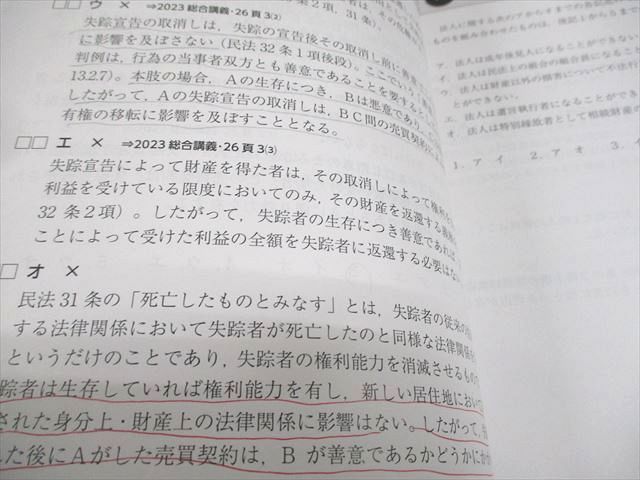 □□ ウ × ⇒2023 総合講義・26 頁 3⑵
失踪宣告の取消しは，失踪の宣告後その取消し前に善意
に影響を及ぼさない（民法 32 条 1 項後段）。ここでいう
判例は，行為の当事者双方とも善意であることを要すると
13.2.7）。本肢の場合，A の生存につき，B は悪意であり，C
したがって，A の失踪宣告の取消しは，B C 間の売買契約に
有権の移転に影響を及ぼすこととなる。
□□ エ × ⇒2023 総合講義・26 頁 3⑶
失踪宣告によって財産を得た者は，その取消しによって権利を
利益を受けている限度においてのみ，その財産を返還する義務
32 条２項）。したがって，失踪者の生存につき善意であれば
ことによって受けた利益の全額を失踪者に返還する必要はな
□ オ ×
民法 31 条の「死亡したものとみなす」とは，失踪者の従来の
する法律関係において失踪者が死亡したのと同様な法律関係を
というだけのことであり，失踪者の権利能力を消滅させるもの
踪者は生存していれば権利能力を有し，新しい居住地におい
された身分上・財産上の法律関係に影響はない。したがって，
た後に A がした売買契約は，B が善意であるかどうかにか
法人に関する次のアからオまでの各記述
ものを組み合わせたものは，後記１から５まで
ア．法人は成年後見人になることができない
イ．法人は民法上の組合の組合員になること
ウ．法人は財産以外の損害について不法行
とができない。
エ．法人は遺言執行者になることができ
オ．法人は特別縁故者として相続財産
１．ア イ ２．ア オ ３．イ